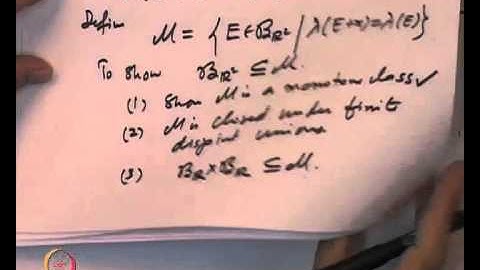 Define
M = { E ∈ B_ℝ² | λ(E+x)=λ(E)}
To show B_ℝ² ⊆ M.
(1) Show M is a monotone class ✓
(2) M is closed under finite
disjoint unions
(3) B_ℝ × B_ℝ ⊆ M.